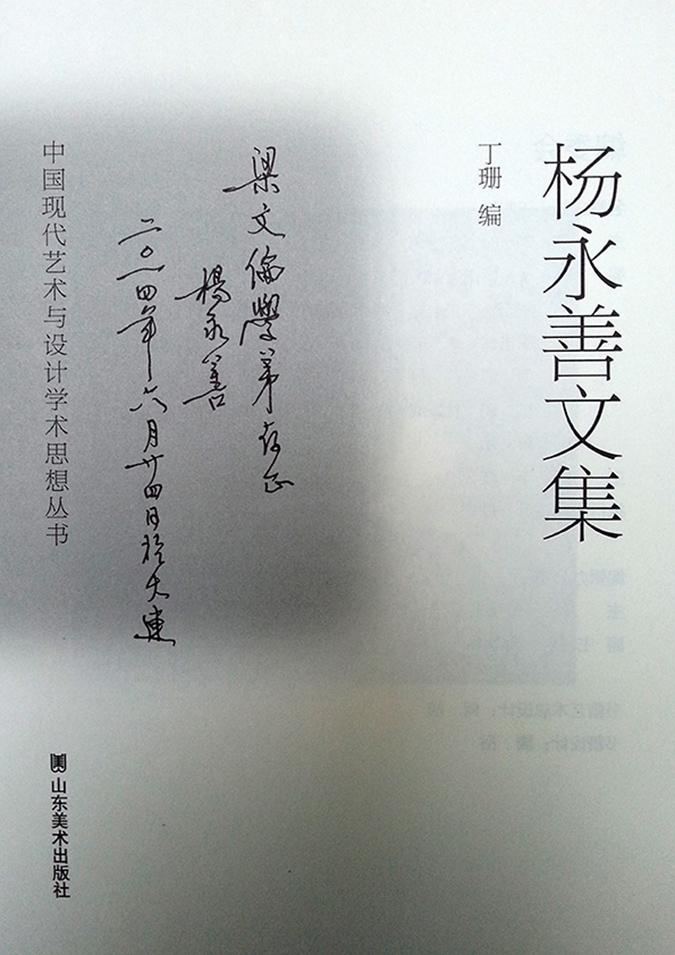 杨永善文集
丁珊 编
梁文倫學弟存正
楊永善
二〇一四年六月廿四日於大連
中国现代艺术与设计学术思想丛书
山东美术出版社